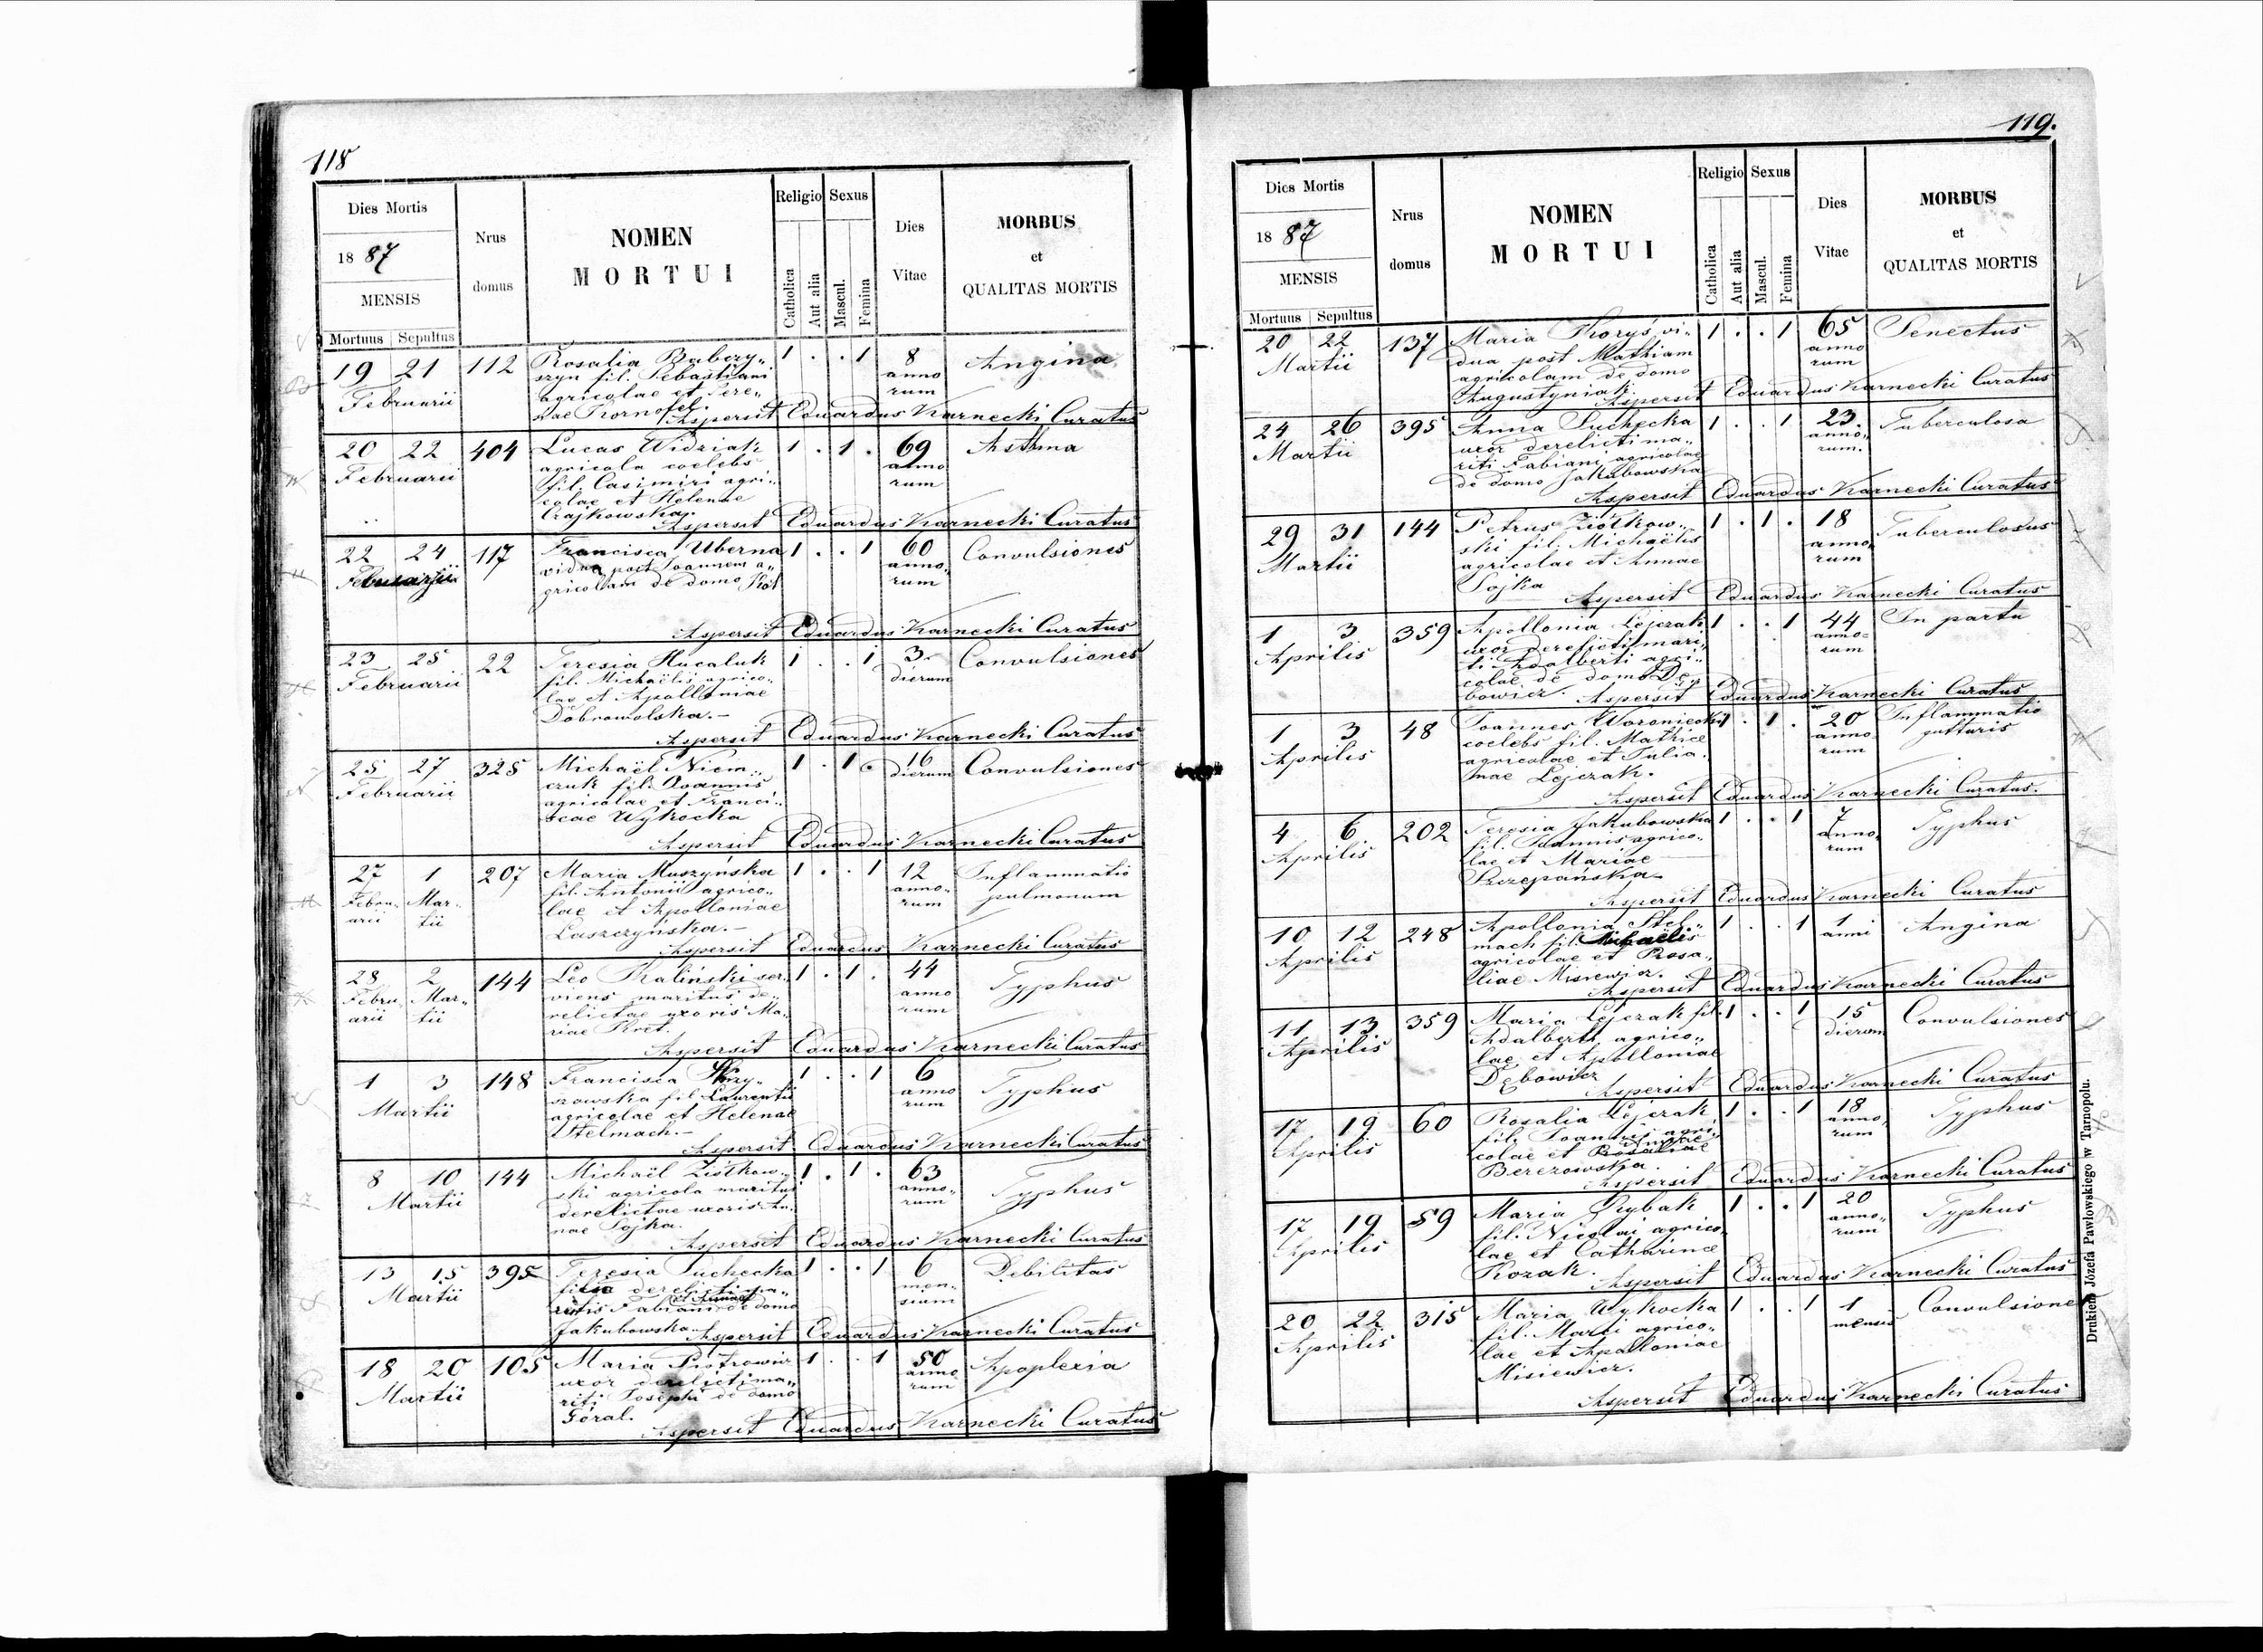 118
Dies Mortis
1887
MENSIS
Mortuus Sepultus
Nrus
domus
NOMEN
MORTUI
Religio
Catholica
Aut alia
Sexus
Mascul.
Femina
Dies
Vitae
MORBUS
et
QUALITAS MORTIS
19 21 112 Rosalia 1 . . 1 8 Angina
Februarii fil. Sebastiani anno
agricolae et Tere„ rum
Aspersit Eduardus Karnecki Curatus
20 22 404 Lucas Widziak 1 . 1 . 69 Asthma
Februarii agricola coelebs anno
fil. Casimiri agri„ rum
colae et Helenae
Czajkowska. Aspersit Eduardus Karnecki Curatus
22 24 117 Francisca Uberna 1 . . 1 60 Convulsiones
Februarii vidua post Joannem a„ anno„
gricolam de domo Kot rum
Aspersit Eduardus Karnecki Curatus
23 25 22 Teresia Hucaluk 1 . . 1 3 Convulsiones
Februarii fil. Michaëlis agrico„ dierum
lae et Apolloniae
Dobrowolska.–
Aspersit Eduardus Karnecki Curatus
25 27 325 Michaël Niem„ 1 . 1 . 16 Convulsiones
Februarii czuk fil. Joannis dierum
agricolae et Franci„
scae Wykocka
Aspersit Eduardus Karnecki Curatus
27 1 207 Maria Muszyńska 1 . . 1 12 Inflammatio
Febru„ Mar„ fil. Antonii agrico„ anno„ pulmonum
arii tii lae et Apolloniae rum
Laszczyńska.–
Aspersit Eduardus Karnecki Curatus
28 2 144 Leo Kaliński ser„ 1 . 1 . 44 Typhus
Febru Mar„ viens maritus de„ anno
arii tii relictae uxoris Ma„ rum
riae Kret.
Aspersit Eduardus Karnecki Curatus
1 3 148 Francisca 1 . . 1 6 Typhus
Martii szowska fil. Laurentii anno
agricolae et Helenae rum
Stelmach.–
Aspersit Eduardus Karnecki Curatus
8 10 144 Michaël Ziółkow„ 1 . 1 . 63 Typhus
Martii ski agricola maritus anno„
derelictae uxoris An„ rum
nae Sojka.
Aspersit Eduardus Karnecki Curatus
13 15 395 Teresia Suchecka 1 . . 1 6 Debilitas
Martii filia derelicti pa„ men„
et Annae
Fabiani de domo sium
Jakubowska Aspersit Eduardus Karnecki Curatus
18 20 105 Maria Piotrowicz 1 . . 1 50 Apoplexia
Martii uxor derelicti ma„ anno
riti Josephi de domo rum
Góral.
Aspersit Eduardus Karnecki Curatus
119.
Dies Mortis
1887
MENSIS
Mortuus Sepultus
Nrus
domus
NOMEN
MORTUI
Religio
Catholica
Aut alia
Sexus
Mascul.
Femina
Dies
Vitae
MORBUS
et
QUALITAS MORTIS
20 22 137 Maria vi„ 1 . . 1 65 Senectus
Martii dua post Mathiam anno
agricolam de domo rum
Aspersit Eduardus Karnecki Curatus
24 26 395 Anna Suchecka 1 . . 1 23. Tuberculosa
Martii uxor derelicti ma„ anno„
riti Fabiani agricolae rum.
de domo Jakubowska
Aspersit Eduardus Karnecki Curatus
29 31 144 Petrus Ziółkow„ 1 . 1 . 18 Tuberculosus
Martii ski fil. Michaëlis anno„
agricolae et Annae rum
Sojka Aspersit Eduardus Karnecki Curatus
1 3 359 Apollonia Lejczak 1 . . 1 44 In partu
Aprilis uxor derelicti mari„ anno„
ti Adalberti agri„ rum
colae de domo Dę„
bowicz. Aspersit Eduardus Karnecki Curatus
1 3 48 Joannes Woroniecki 1 . 1 . 20 Inflammatio
Aprilis coelebs fil. anno gutturis
agricolae et Julia„ rum
nae Lejczak.
Aspersit Eduardus Karnecki Curatus.
4 6 202 Teresia Jakubowska 1 . . 1 7 Typhus
Aprilis fil. Joannis agrico„ anno„
lae et Mariae rum
Szczepańska
Aspersit Eduardus Karnecki Curatus
10 12 248 Apollonia Stel„ 1 . . 1 1 Angina
Aprilis mach fil. Michaëlis anni
agricolae et Rosa„
liae Misiewicz.
Aspersit Eduardus Karnecki Curatus
11 13 359 Maria Lejczak fil. 1 . . 1 15 Convulsiones
Aprilis Adalberti agrico„ dierum
lae et Apolloniae
Dębowicz Aspersit Eduardus Karnecki Curatus
17 19 60 Rosalia Lejczak 1 . . 1 18 Typhus
Aprilis fil. Joannis agri„ anno„
colae et Rosaliae rum
Berezowska.
Aspersit Eduardus Karnecki Curatus
17 19 59 Maria Rybak 1 . . 1 20 Typhus
Aprilis fil. Nicolai agrico„ anno„
lae et Catharinae rum
Kozak. Aspersit Eduardus Karnecki Curatus
20 22 315 Maria Wykocka 1 . . 1 1 Convulsiones
Aprilis fil. Marci agrico„ mensis
lae et Apolloniae
Misiewicz.
Aspersit Eduardus Karnecki Curatus
Drukiem Józefa Pawłowskiego w Tarnopolu.